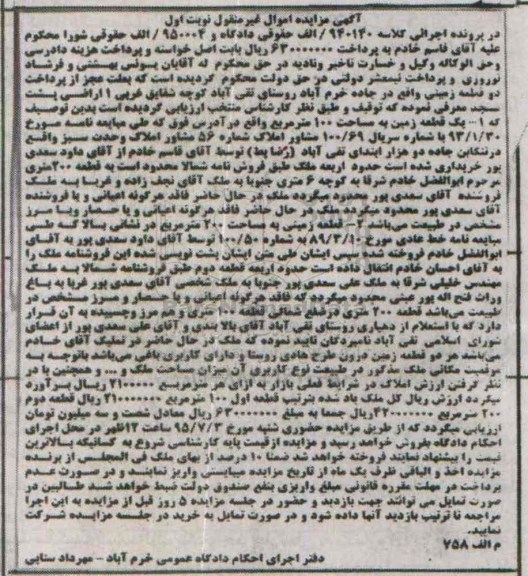 آگهی مزایده اموال غیرمنقول نوبت اول
در پرونده اجرائی کلاسه ۹۴۰۱۴۰ / الف حقوقی دادگاه و ۹۵۰۰۰۴ / الف حقوقی شورا محکوم
علیه آقای قاسم خادم به پرداخت ۶۳۰۰۰۰۰۰۰ ریال بابت اصل خواسته و پرداخت هزینه دادرسی
وحق الوکاله وکیل و خسارت تاخیر وتادیه در حق محکوم له آقایان یونس بهشتی و فرشاد
نوروزی و پرداخت نیمعشر دولتی در حق دولت محکوم گردیده است که بعلت عجز از پرداخت
دو قطعه زمینی واقع در جاده خرم آباد روستای تقی آباد کوچه شقایق غربی ۱ اراضی پشت
مسجد معرفی نموده که توقیف و طبق نظر کارشناس منتخب ارزیابی گردیده است بدین توصیف
که ۱- یک قطعه زمین به مساحت ۱۰۰ مترمربع واقع در آدرس فوق که طی مبایعه نامه مورخ
۹۳/۱/۳۰ با شماره سریال ۱۰۰/۶۹ مشاور املاک شماره ۵۶ مشاور املاک وحدت مسیر واقع
درتنکابن جاده دو هزار ابتدای تقی آباد (رضا پط) توسط آقای قاسم خادم از آقای داود سعدی
پور خریداری شده است حدود اربعه ملک طبق فروش نامه شمالا محدود است به قطعه ۲۰۰متری
مرحوم ابوالفضل خادم شرقا به کوچه ۶ متری جنوبا به ملک آقای نجف زاده و غربا به ملک
فروشنده آقای سعدی پور محدود میگردد ملک در حال حاضر فاقد هرگونه اعیانی و یا فروشنده
آقای سعدی پور محدود میگردد ملک در حال حاضر فاقد هرگونه اعیانی و یا حصار ویا مرز
مشخص در طبیعت می‌باشد. ۲- قطعه زمینی به مساحت ۲۰۰ مترمربع در نشانی بالا که طی
مبایعه نامه خط عادی مورخ ۸۹/۳/۱۰ به شماره ۱۰۰/۵۰ توسط آقای داود سعدی پور به آقای
ابوالفضل خادم فروخته شد، سپس ایشان طی متن ایشان پشت نویسی شده این فروشنامه ملک را
به آقای احسان خادم انتقال داده است حدود اربعه قطعه دوم طبق فروشنامه شمالا به ملک
مهندس خلیلی شرقا به ملک علی سعدی پور جنوبا به ملک شخصی آقای سعدی پور غربا به باغ
وراث فتح اله پور عینی محدود میگردد که فاقد هرگونه اعیانی و یا حصار و مرز مشخص در
طبیعت می‌باشد قطعه ۲۰۰ متری در ضلع شمالی قطعه ۱۰۰ متری و هم مرز وچسبیده به آن قرار
دارد که با استعلام از دهیاری روستای تقی آباد آقای بالا بندی و آقای علی سعدی پور از اعضای
شورای اسلامی تقی آباد نامبردگان تایید نموده که ملک در حال حاضر در تملیک آقای خادم
می‌باشد هر دو قطعه زمین درون طرح هادی روستا و دارای کاربری باغی می‌باشد باتوجه به
موقعیت مکانی ملک مذکور در طبیعت نوع کاربری آن میزان مساحت ملک و ... و همچنین با در
نظر گرفتن ارزش املاک در شرایط فعلی بازار به ازای هر مترمربع ۲۱۰۰۰۰۰ ریال برآورد
میگردد ارزش ریال کل ملک یاد شده بترتیب قطعه اول ۱۰۰ مترمربع ۲۱۰۰۰۰۰۰۰ ریال قطعه دوم
۲۰۰ مترمربع ۴۲۰۰۰۰۰۰۰ ریال جمعا به مبلغ ۶۳۰۰۰۰۰۰۰ ریال معادل شصت و سه میلیون تومان
ارزیابی میگردد که از طریق مزایده حضوری شنبه مورخ ۹۵/۷/۳ ساعت ۱۲ظهر در محل اجرای
احکام دادگاه بفروش خواهد رسید و مزایده از قیمت پایه کارشناسی شروع به کسانیکه بالاترین
قیمت را پیشنهاد نمایند فروخته خواهد شد ضمنا ۱۰ درصد از بهای ملک فی المجلس از برنده
مزایده اخذ و الباقی ظرف یک ماه از تاریخ مزایده میبایستی واریز نمایند و در صورت عدم
پرداخت در مهلت مقرره قانونی مبلغ واریزی بنفع صندوق دولت ضبط خواهد شد طالبین در
صورت تمایل می توانند جهت بازدید و حضور در جلسه مزایده ۵ روز قبل از مزایده به این اجرا
مراجعه تا ترتیب بازدید آنها داده شود و در صورت تمایل به خرید در جلسه مزایده شرکت
نمایند.
م الف ۷۵۸
دفتر اجرای احکام دادگاه عمومی خرم آباد – مهرداد سنایی